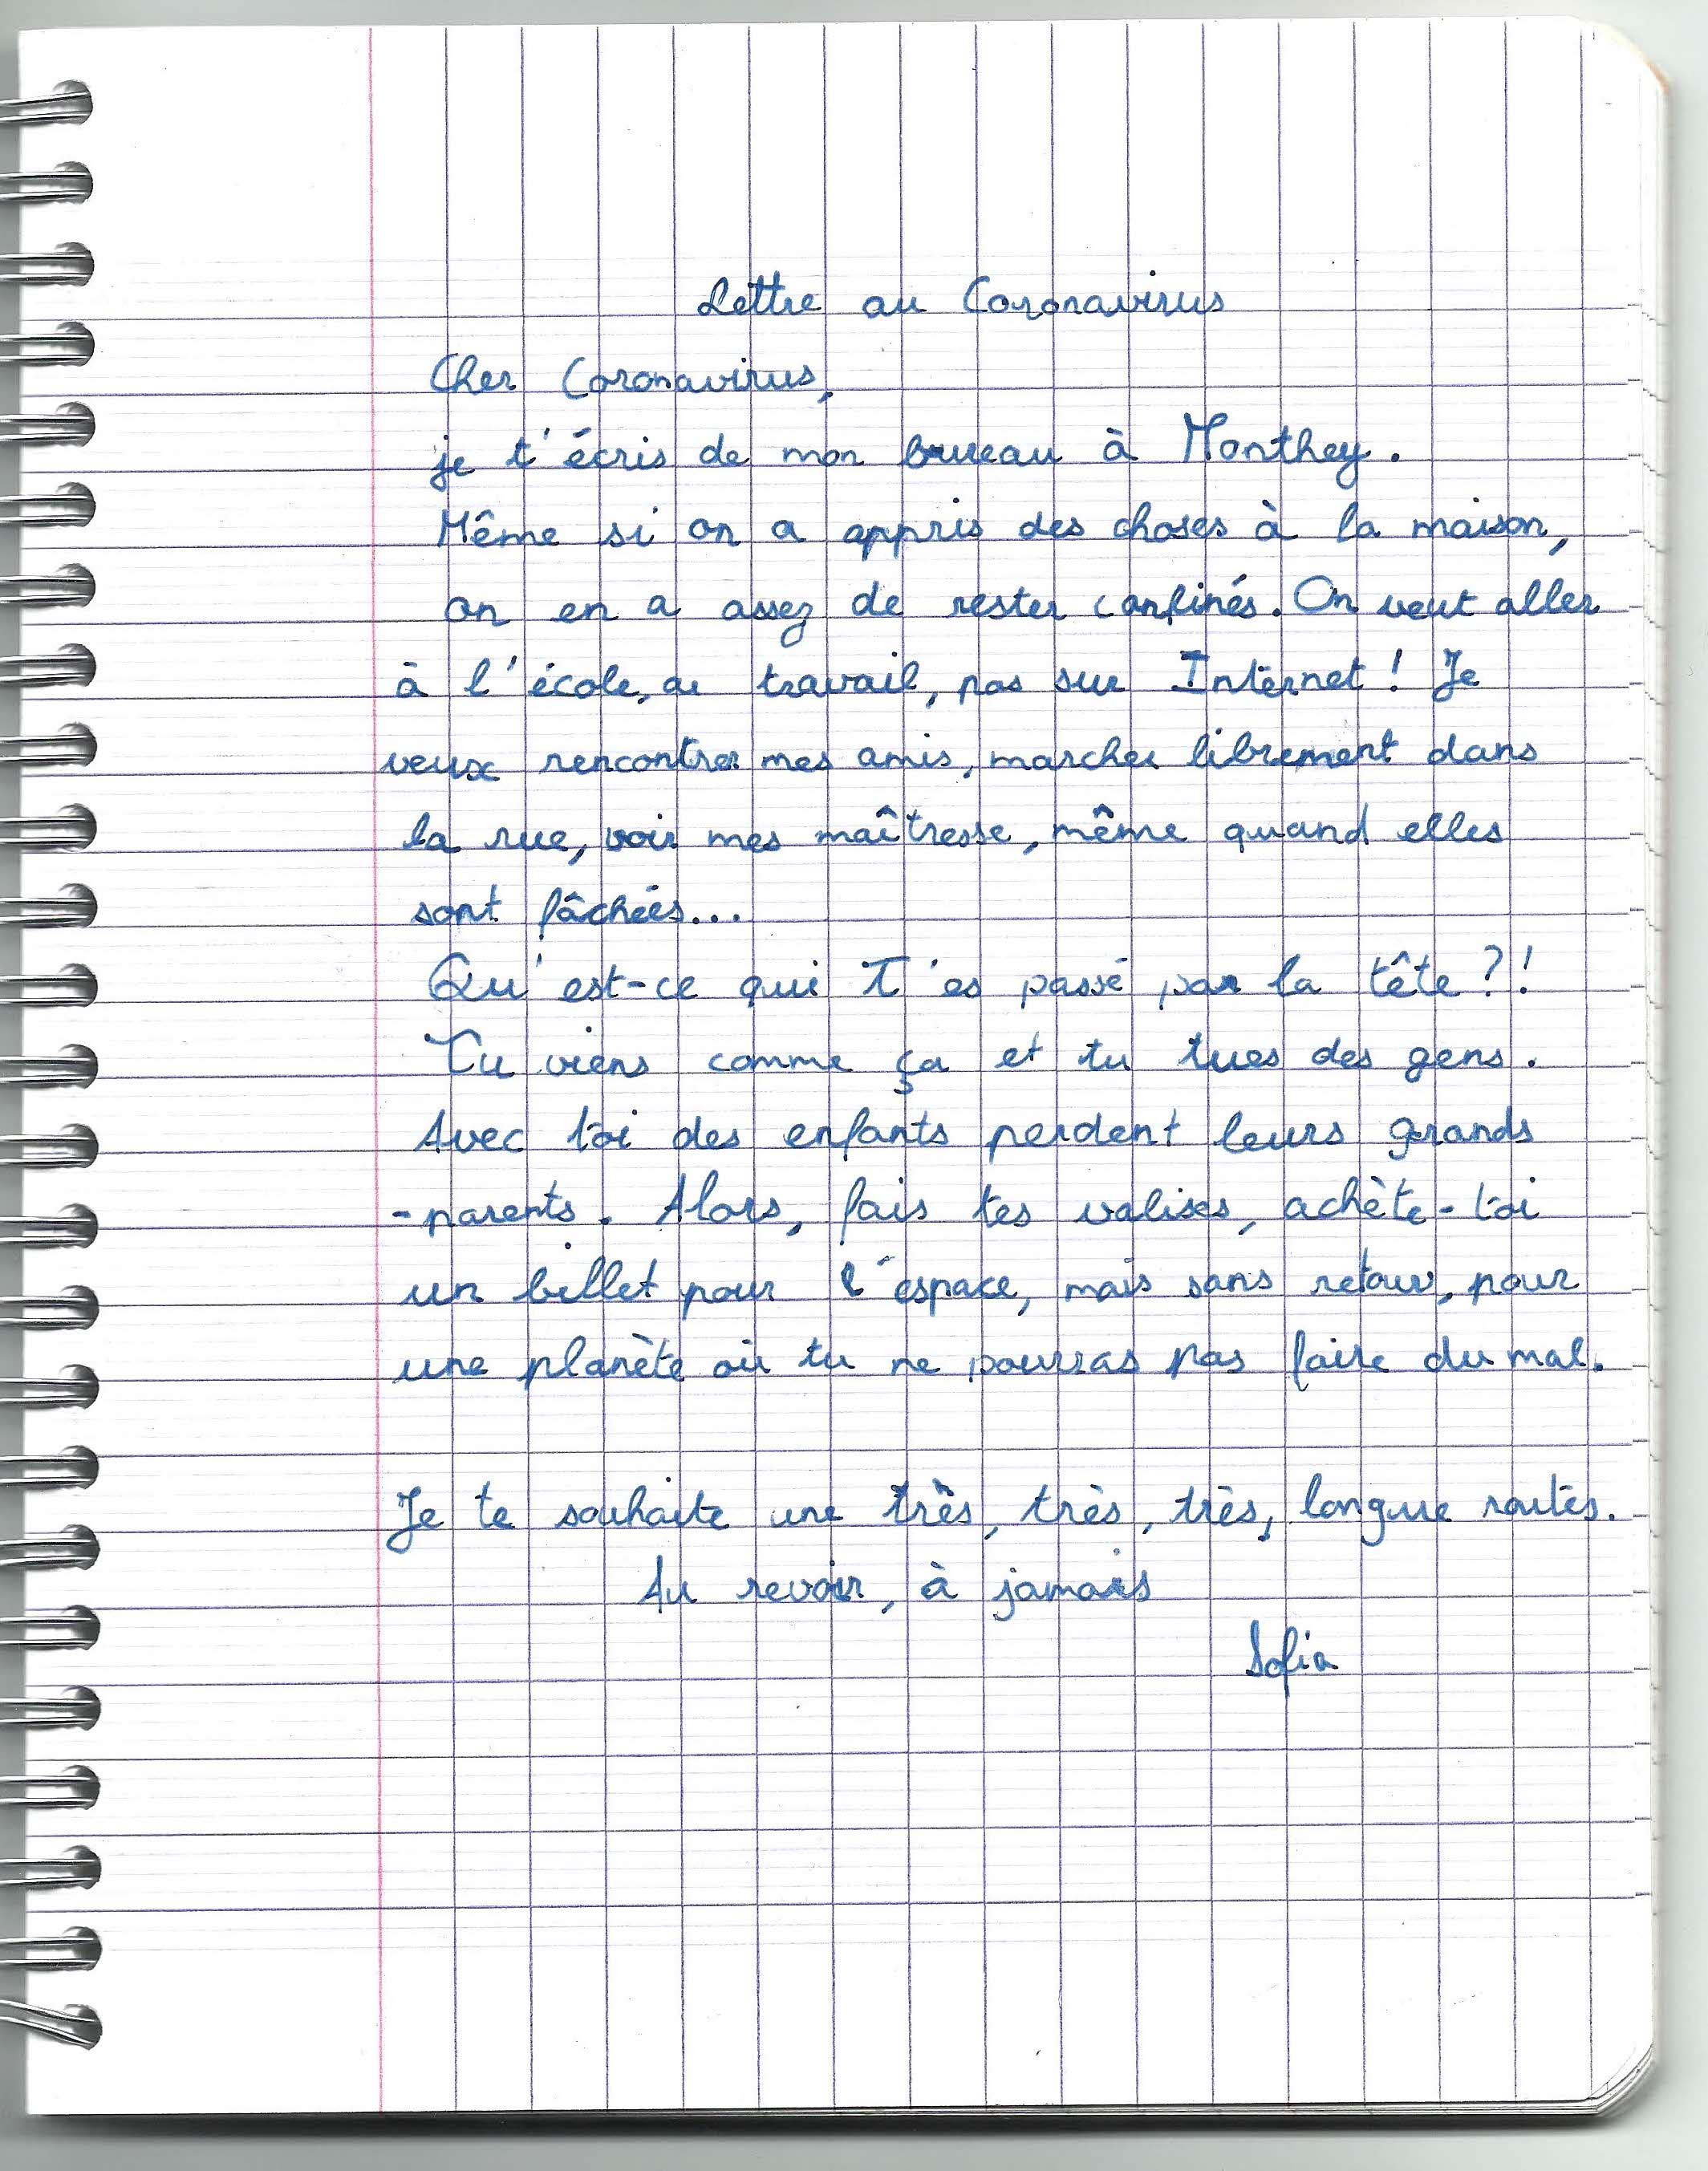 Lettre au Coronavirus
Cher Coronavirus,
je t'écris de mon brueau à Monthey.
Même si on a appris des choses à la maison,
on en a assez de rester confinés. On veut aller
à l'école, au travail, pas sur Internet! Je
veux rencontrer mes amis, marcher librement dans
la rue, voir mes maîtresse, même quand elles
sont fâchées...
Qu'est-ce qui t'es passé par la tête?!
Tu viens comme ça et tu tues des gens.
Avec toi des enfants perdent leurs grands
-parents. Alors, fais tes valises, achète-toi
un billet pour l'espace, mais sans retour, pour
une planète où tu ne pourras pas faire du mal.
Je te souhaite une très, très, très, longue routes.
Au revoir, à jamais
Sofia